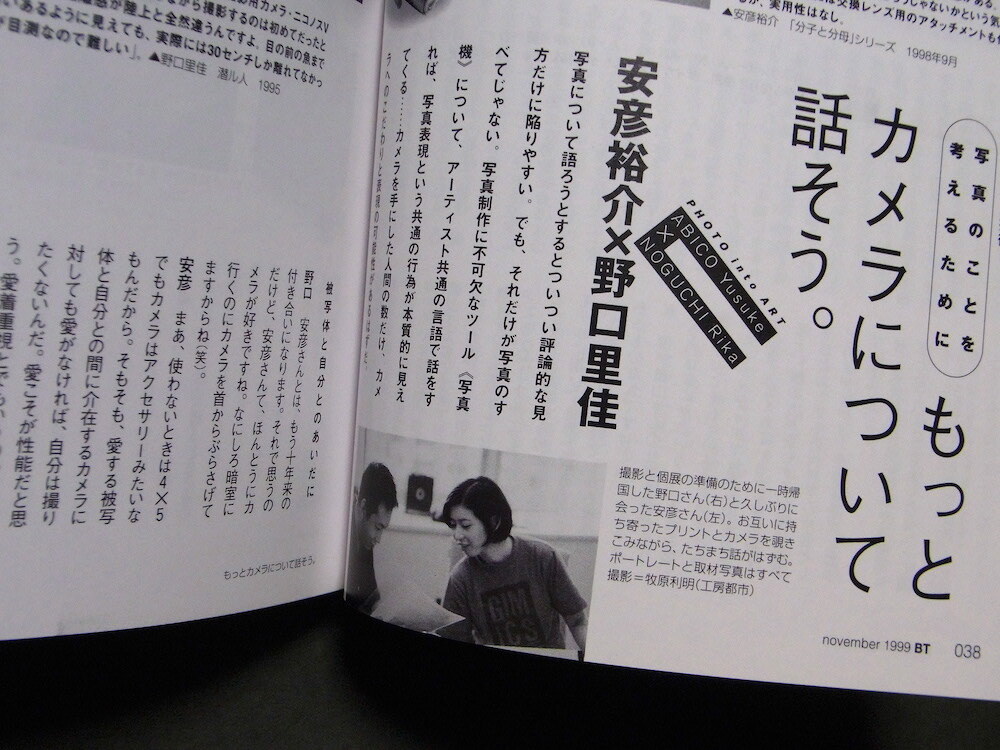 実用性はなし。
▲安彦裕介 「分子と分母」シリーズ 1998年9月
写真のことを
考えるために
もっと
カメラについて
話そう。
PHOTO into ART
ABICO Yusuke
×
NOGUCHI Rika
安彦裕介×野口里佳
写真について語ろうとするとついつい評論的な見
方だけに陥りやすい。でも、それだけが写真のす
べてじゃない。写真制作に不可欠なツール《写真
機》について、アーティスト共通の言語で話をす
れば、写真表現という共通の行為が本質的に見え
てくる……カメラを手にした人間の数だけ、カメ
ラへのこだわりと表現の可能性があるはずだ。
撮影と個展の準備のために一時帰
国した野口さん(右)と久しぶりに
会った安彦さん(左)。お互いに持
ち寄ったプリントとカメラを覗き
こみながら、たちまち話がはずむ。
ポートレートと取材写真はすべて
撮影＝牧原利明(工房都市)
november 1999 BT 038
用カメラ・ニコノスV
がら撮影するのは初めてだったと
感が陸上と全然違うんですよ。目の前の魚まで
いあるように見えても、実際には30センチしか離れてなかっ
目測なので難しい」。▲野口里佳 潜ル人 1995
被写体と自分とのあいだに
野口 安彦さんとは、もう十年来の
付き合いになります。それで思うの
だけど、安彦さんて、ほんとうにカ
メラが好きですね。なにしろ暗室に
行くのにカメラを首からぶらさげて
ますからね(笑)。
安彦 まあ、使わないときは4×5
でもカメラはアクセサリーみたいな
もんだから。そもそも、愛する被写
体と自分との間に介在するカメラに
対しても愛がなければ、自分は撮り
たくないんだ。愛こそが性能だと思
う。愛着重視
もっとカメラについて話そう。